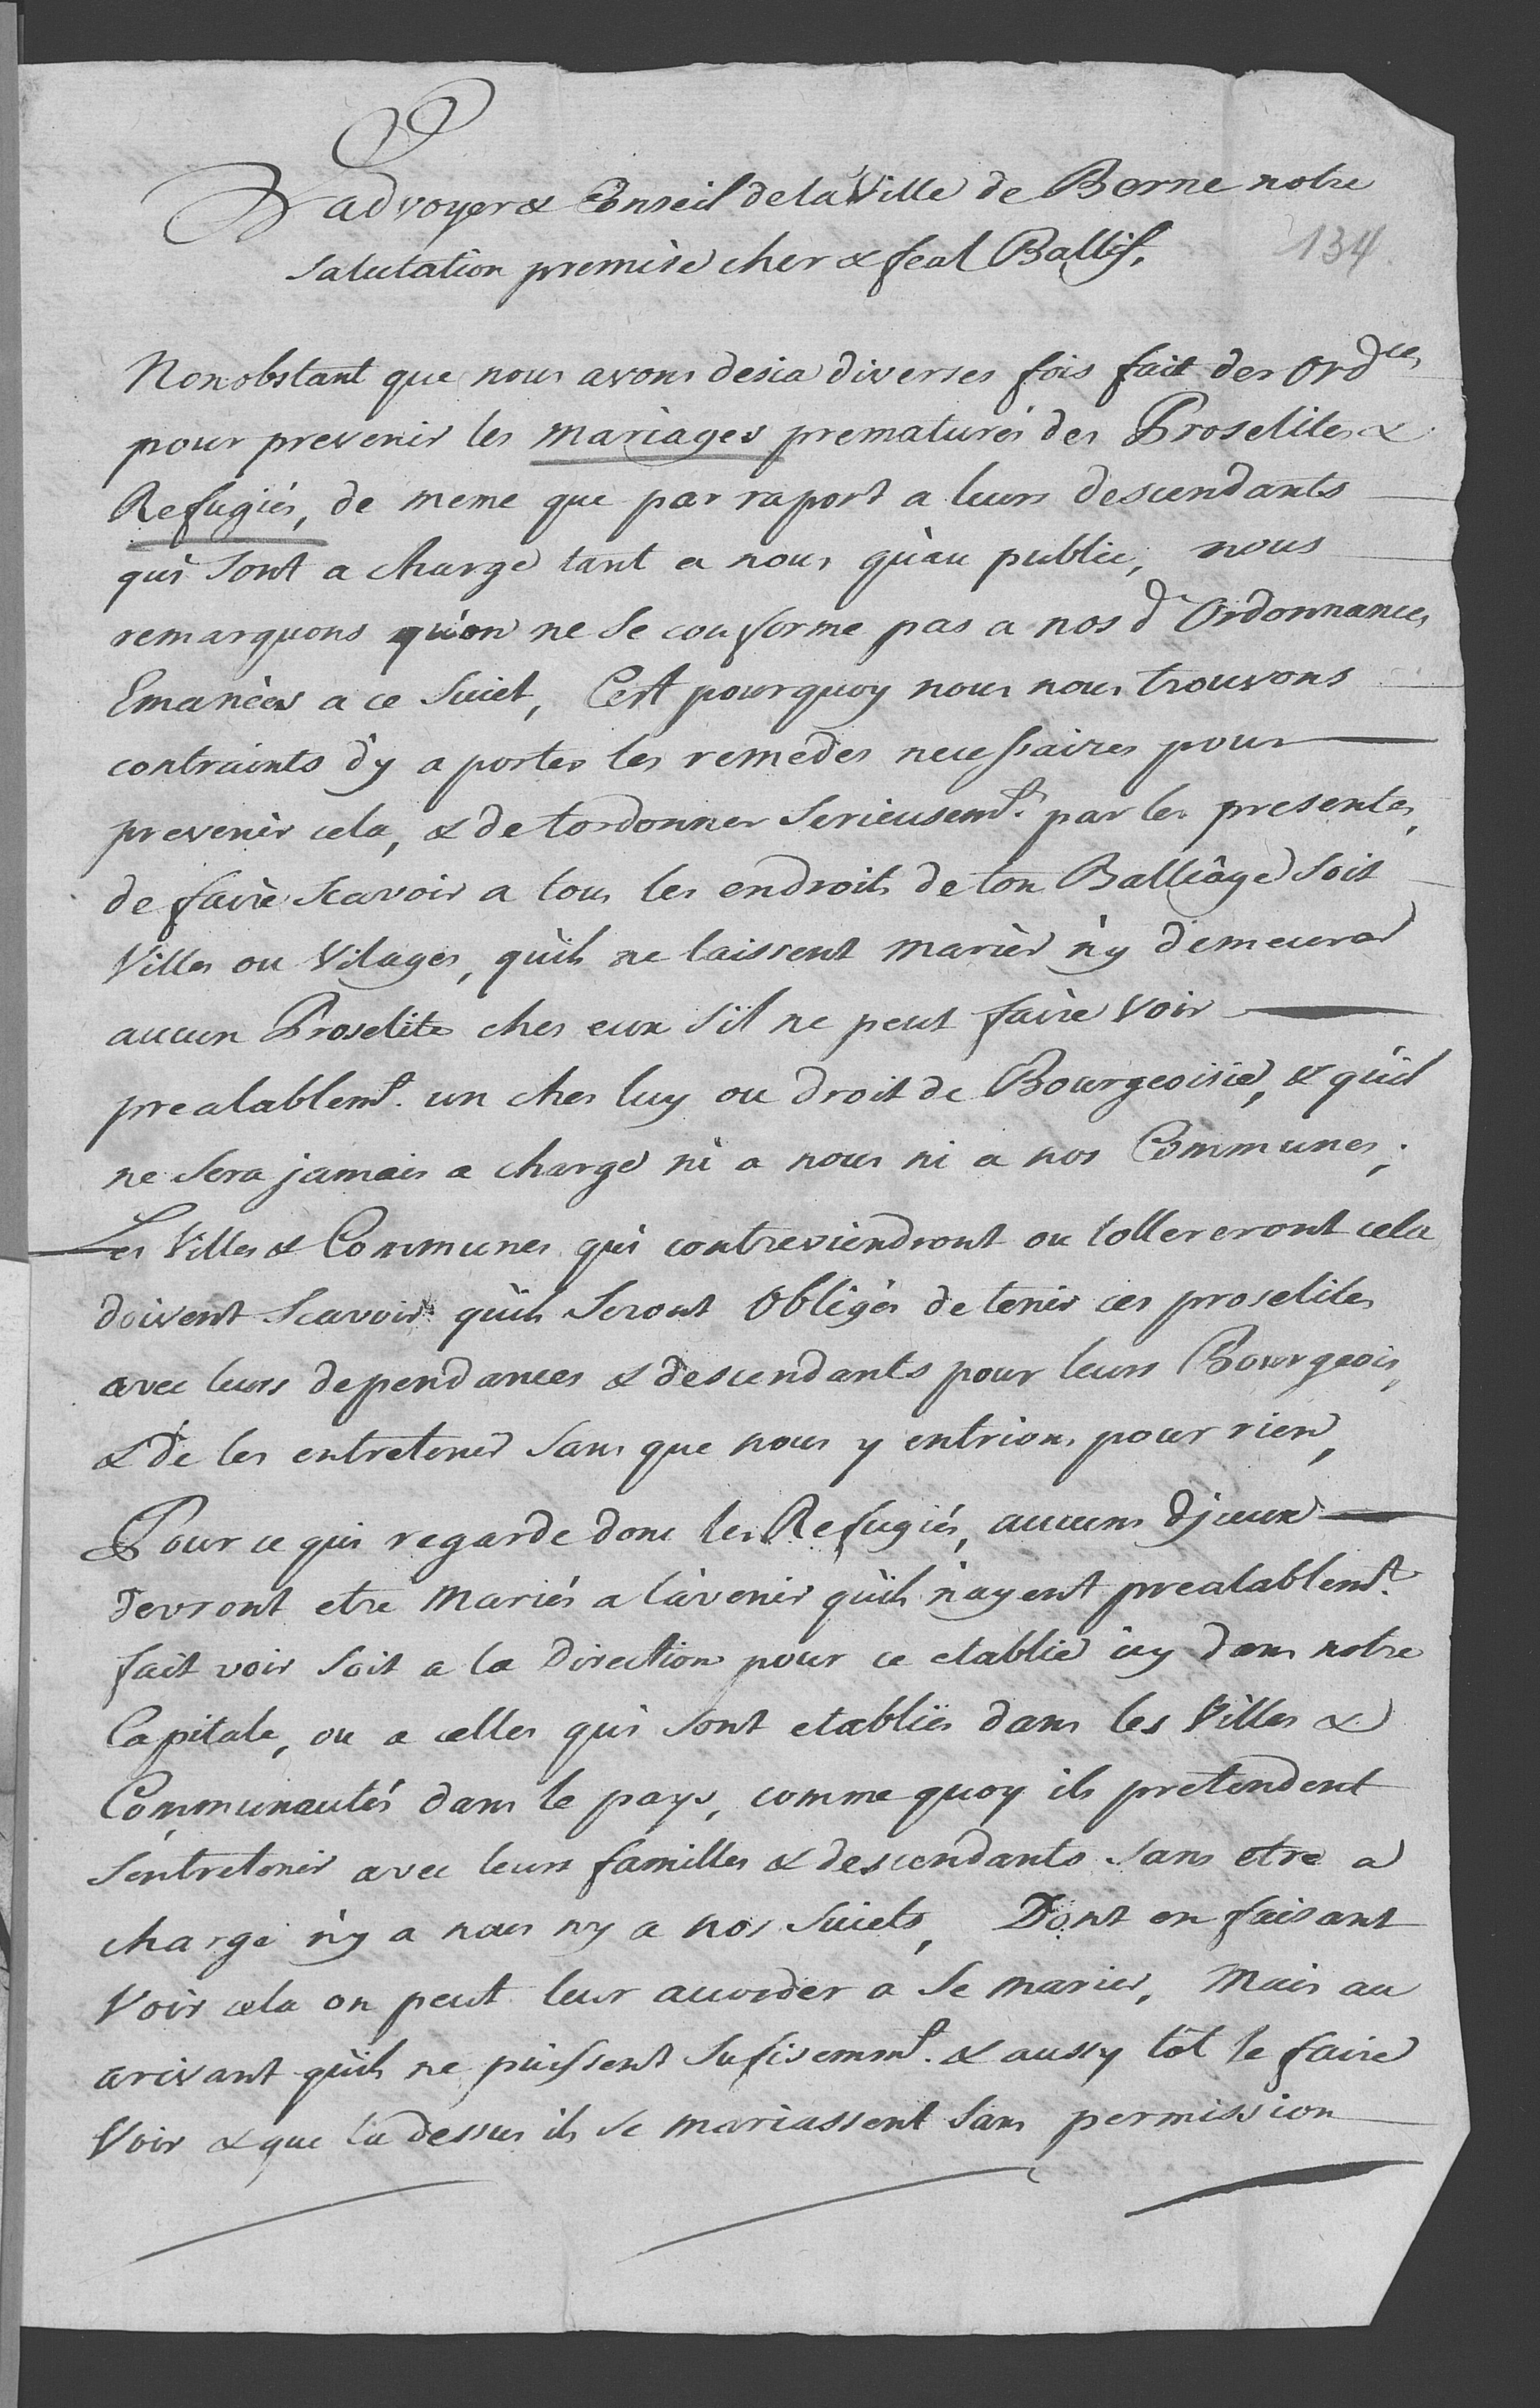 L'advoyer & Conseil de la Ville de Berne notre
salutation premise cher & feal Ballif.
134.
Nonobstant que nous avons desia diverses fois fait des Ord.ces
pour prevenir les mariages prematurés des Proselites &
Refugiés, de meme que par raport a leurs descendants
qui sont a charge tant a nous qu'au public, nous
remarquons qu'on ne se conforme pas a nos d.' Ordonnances
Emanées a ce suiet, C'est pourquoy nous nous trouvons
contraints d'y a porter les remedes necessaires pour
prevenir cela, & de t'ordonner serieusem.t par les presentes,
de faire scavoir a tous les endroits de ton Balliâge soit
Villes ou Vilages, qu'ils ne laissent marier n'y demeurer
aucun Proselite ches eux s'il ne peut faire voir
prealablem.t un ches luy ou droit de Bourgeoisie, & qu'il
ne sera jamais a charge ni a nous ni a nos Communes;
Les Villes & Communes qui contreviendront ou tollereront cela
doivent scavoir qu'ils seront obligés de tenir ces proselites
avec leurs dependances & descendants pour leurs Bourgeois,
& de les entretenir sans que nous y entrions pour rien,
Pour ce qui regarde donc les Refugiés, aucuns d'jceux
devront etre mariés a l'avenir qu'ils n'ayent prealablem.t
fait voir soit a la Direction pour ce etablie icy dans notre
Capitale, ou a celles qui sont etablies dans les Villes &
Communautés dans le pays, comme quoy ils pretendent
s'entretenir avec leurs familles & descendants sans etre a
charge n'y a nous ny a nos suiets, Dont en faisant
voir cela on peut leur accorder a se marier, Mais au
arivant qu'ils ne puissent sufisemm.t & aussy tôt le faire
voir & que la dessus ils se mariassent sans permission